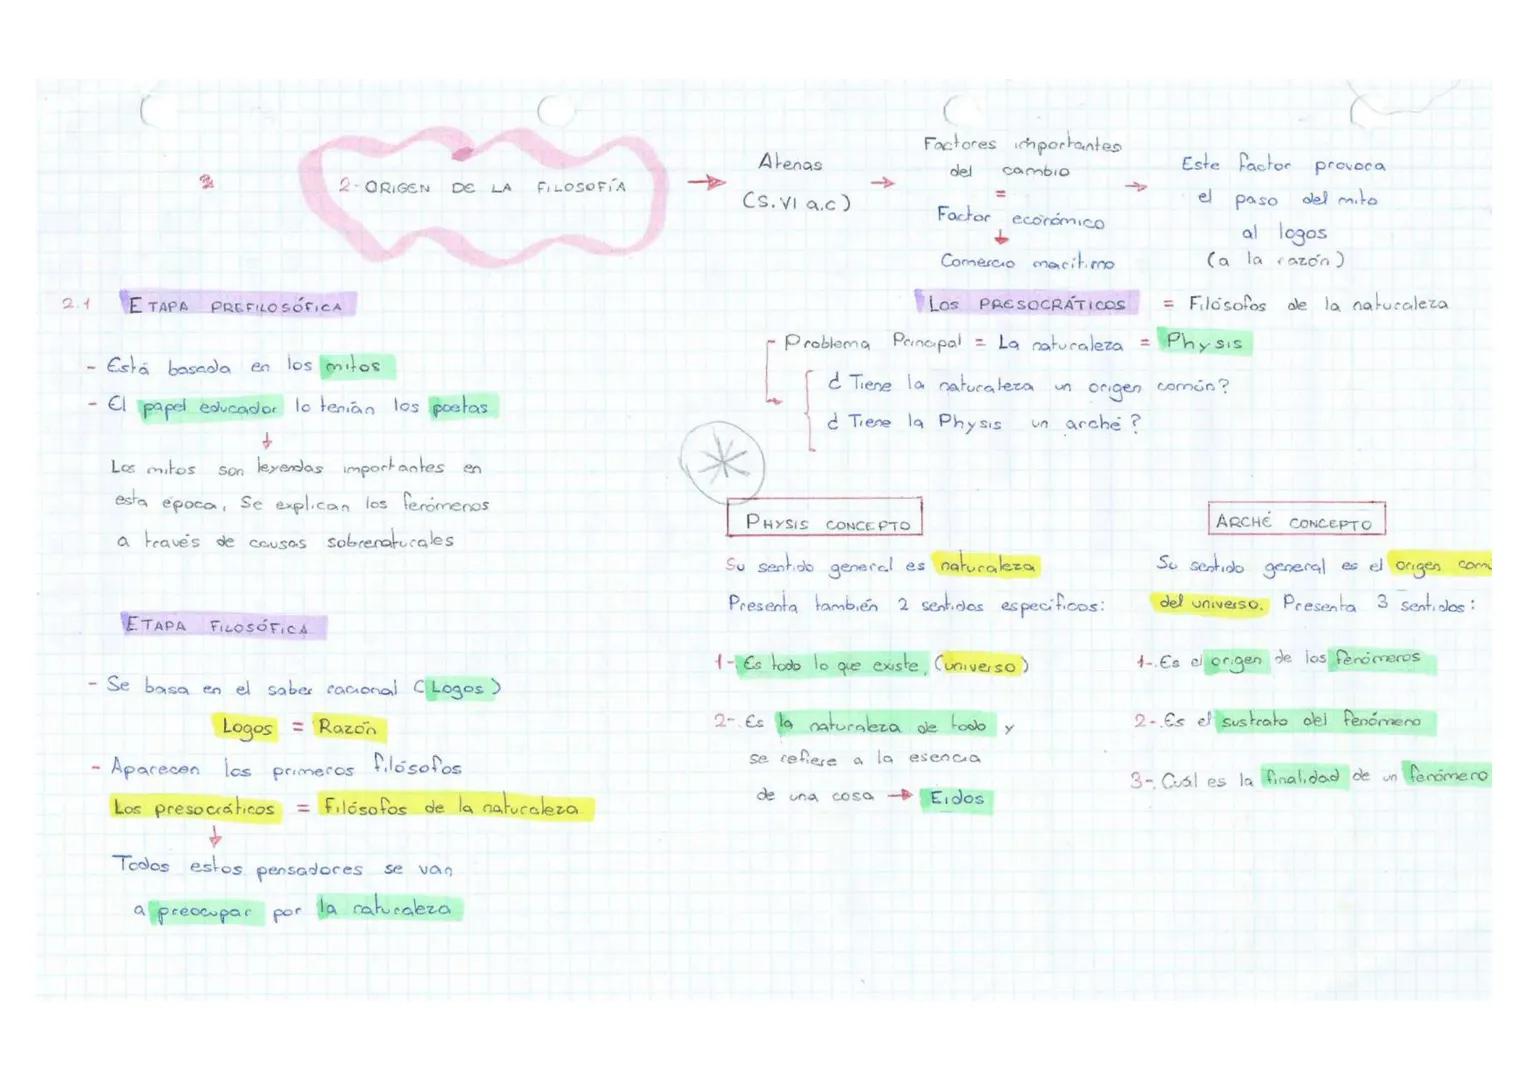 2-ORIGEN DE LA FILOSOFÍA
Atenas
(S.VI a.c)
Factores importantes
del cambio
=
Factor económico
Comercio marítimo
Este factor provoca
el paso del mito
al logos
(a la razón)
2.1 ETAPA PREFILOSÓFICA
- Está basada en los mitos
- El papel educador lo tenían los poetas
Los mitos son leyendas importantes en
esta época, Se explican los fenómenos
a través de causas sobrenaturales
ETAPA FILOSÓFICA
- Se basa en el saber racional (Logos)
Logos = Razón
- Aparecen los primeros filósofos
Los presocráticos = Filósofos de la naturaleza
Todos estos pensadores se van
a preocupar por la naturaleza
LOS PRESOCRÁTICOS = Filósofos de la naturaleza
- Problema Principal = La naturaleza = Physis
¿Tiene la naturaleza un origen común?
¿Tiene la Physis un arché?
PHYSIS CONCEPTO
Su sentido general es naturaleza
Presenta también 2 sentidos específicos:
1- Es todo lo que existe, (universo)
2-. Es la naturaleza de todo y
se refiere a la esencia
de una cosa → Eidos
ARCHÉ CONCEPTO
Su sentido general es el origen
del universo. Presenta 3 sentidos:
1-. Es el origen de los fenómenos
2-. Es el sustrato del fenómeno
3-. Cuál es la finalidad de un fenómeno